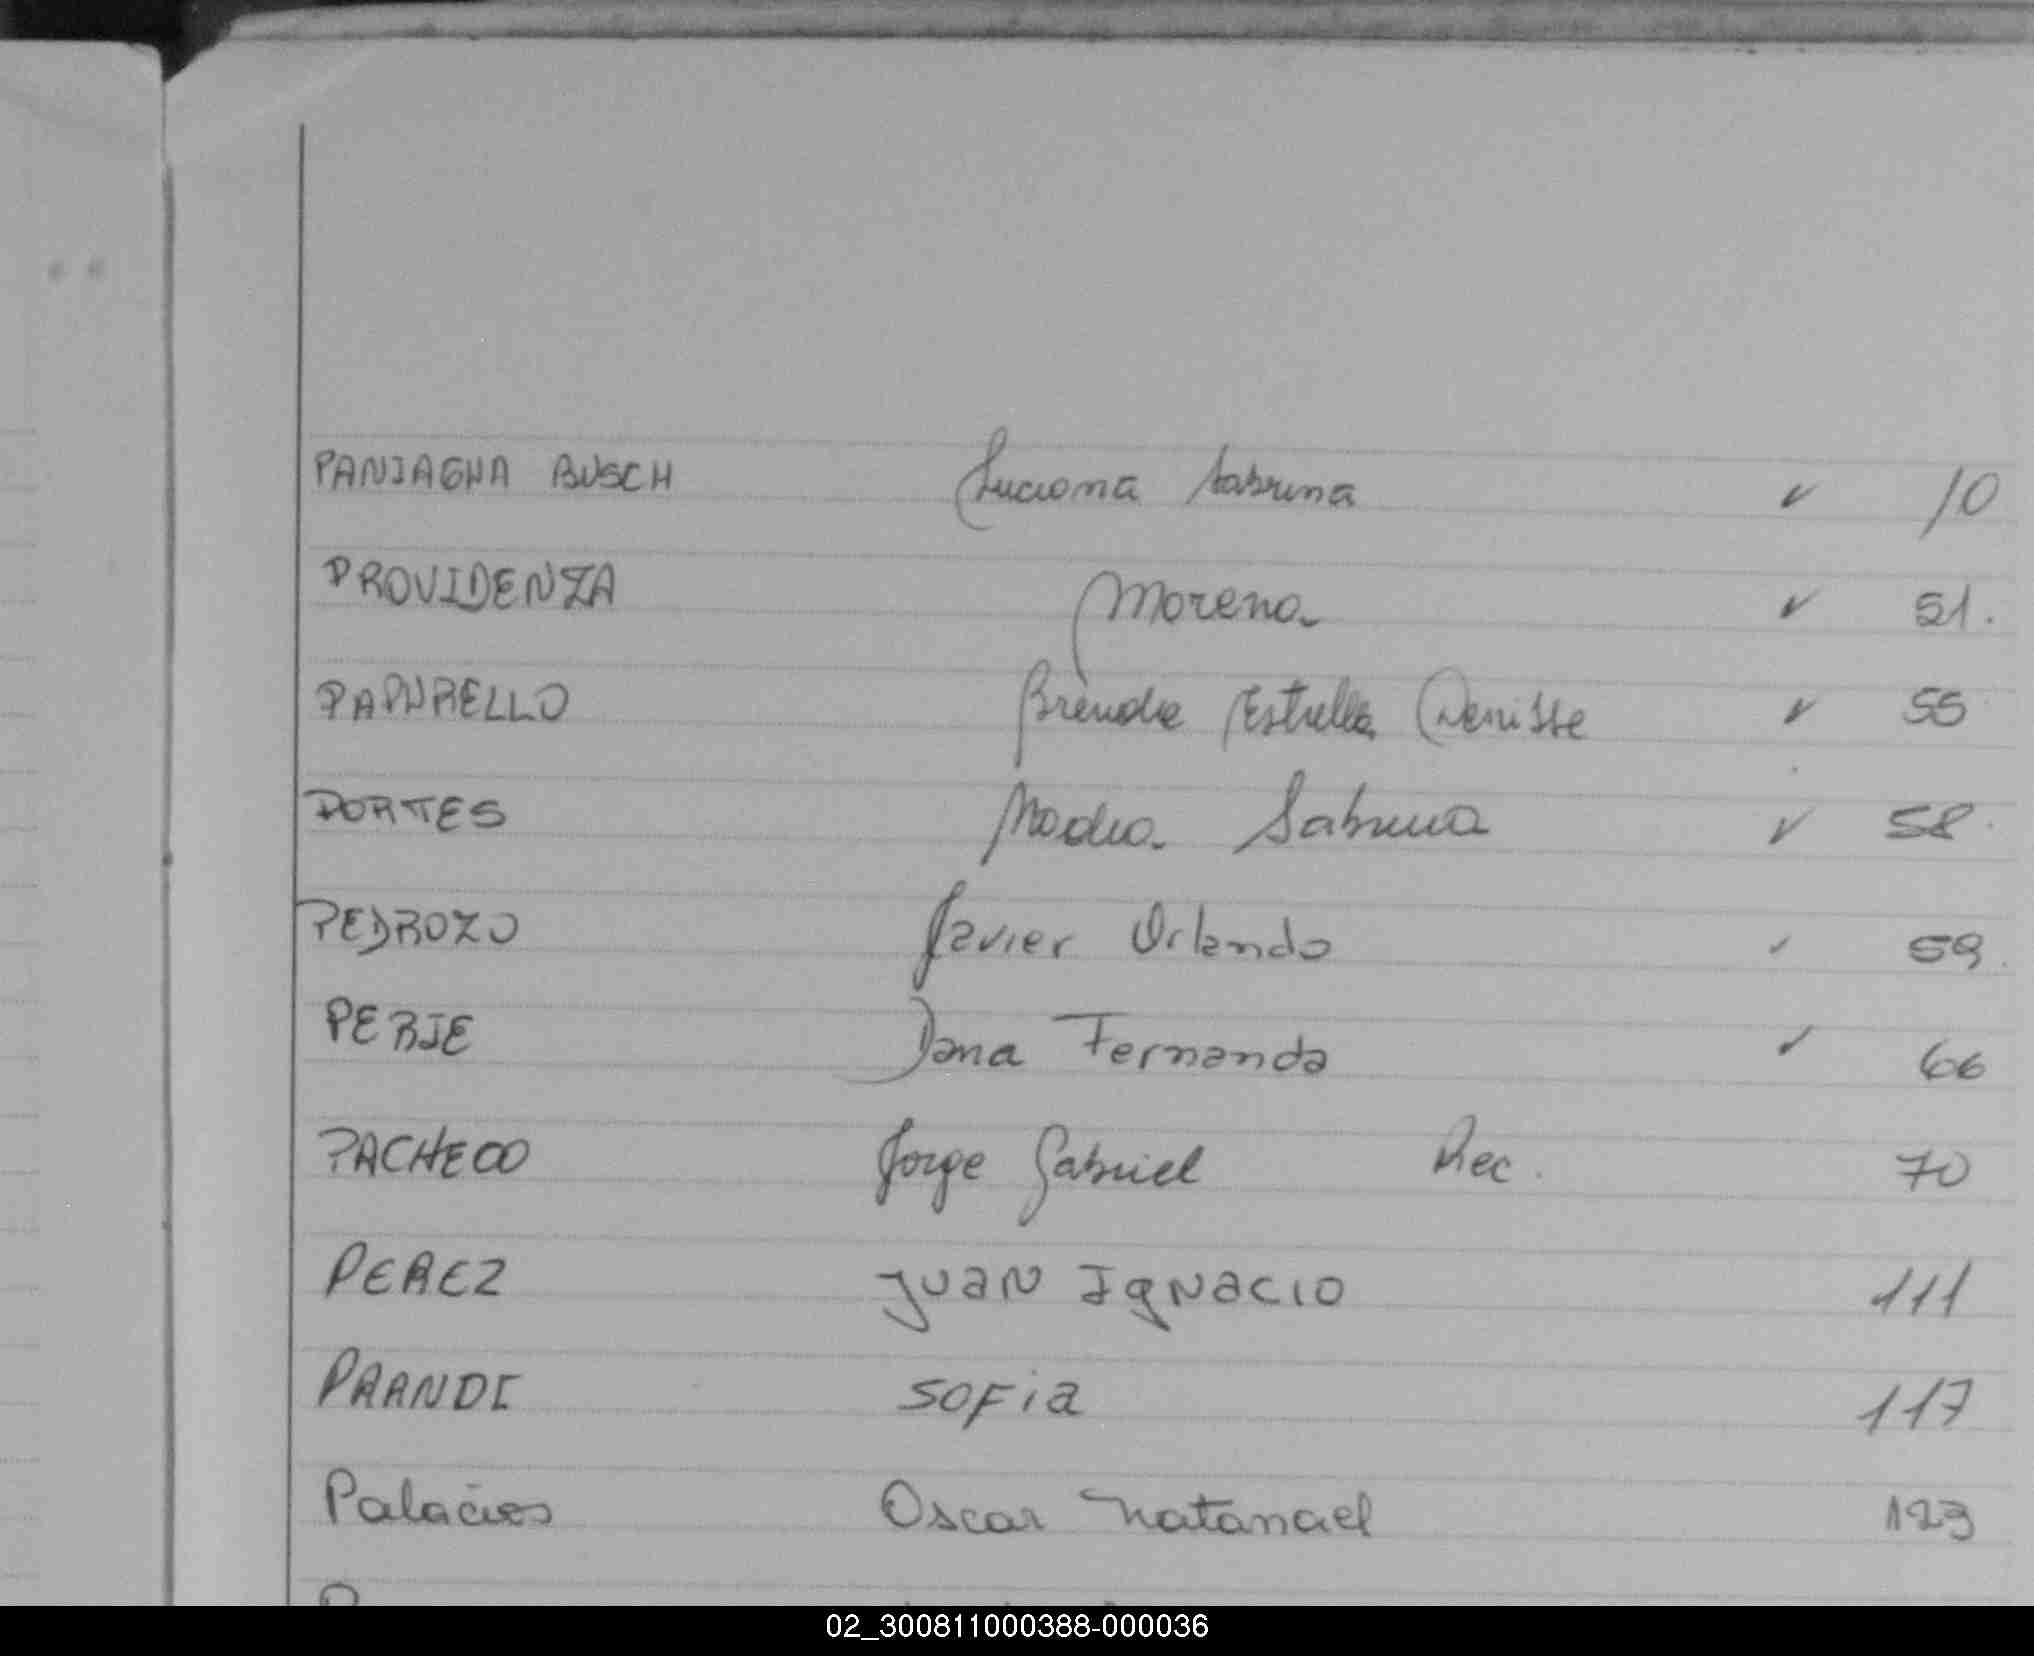 PANIAGUA BUSCH Luciana Sabrina ✓ 10
PROVIDENZA Morena ✓ 51.
PAPURELLO Brenda Estrella Denisse ✓ 55
PORTES Nadia Sabrina ✓ 58.
PEDROZO Javier Orlando ✓ 59.
PERJE Dana Fernanda ✓ 66
PACHECO Jorge Gabriel Rec. 70
PEREZ Juan Ignacio 111
PRANDI Sofia 117
Palacios Oscar Natanael 123
02_300811000388-000036